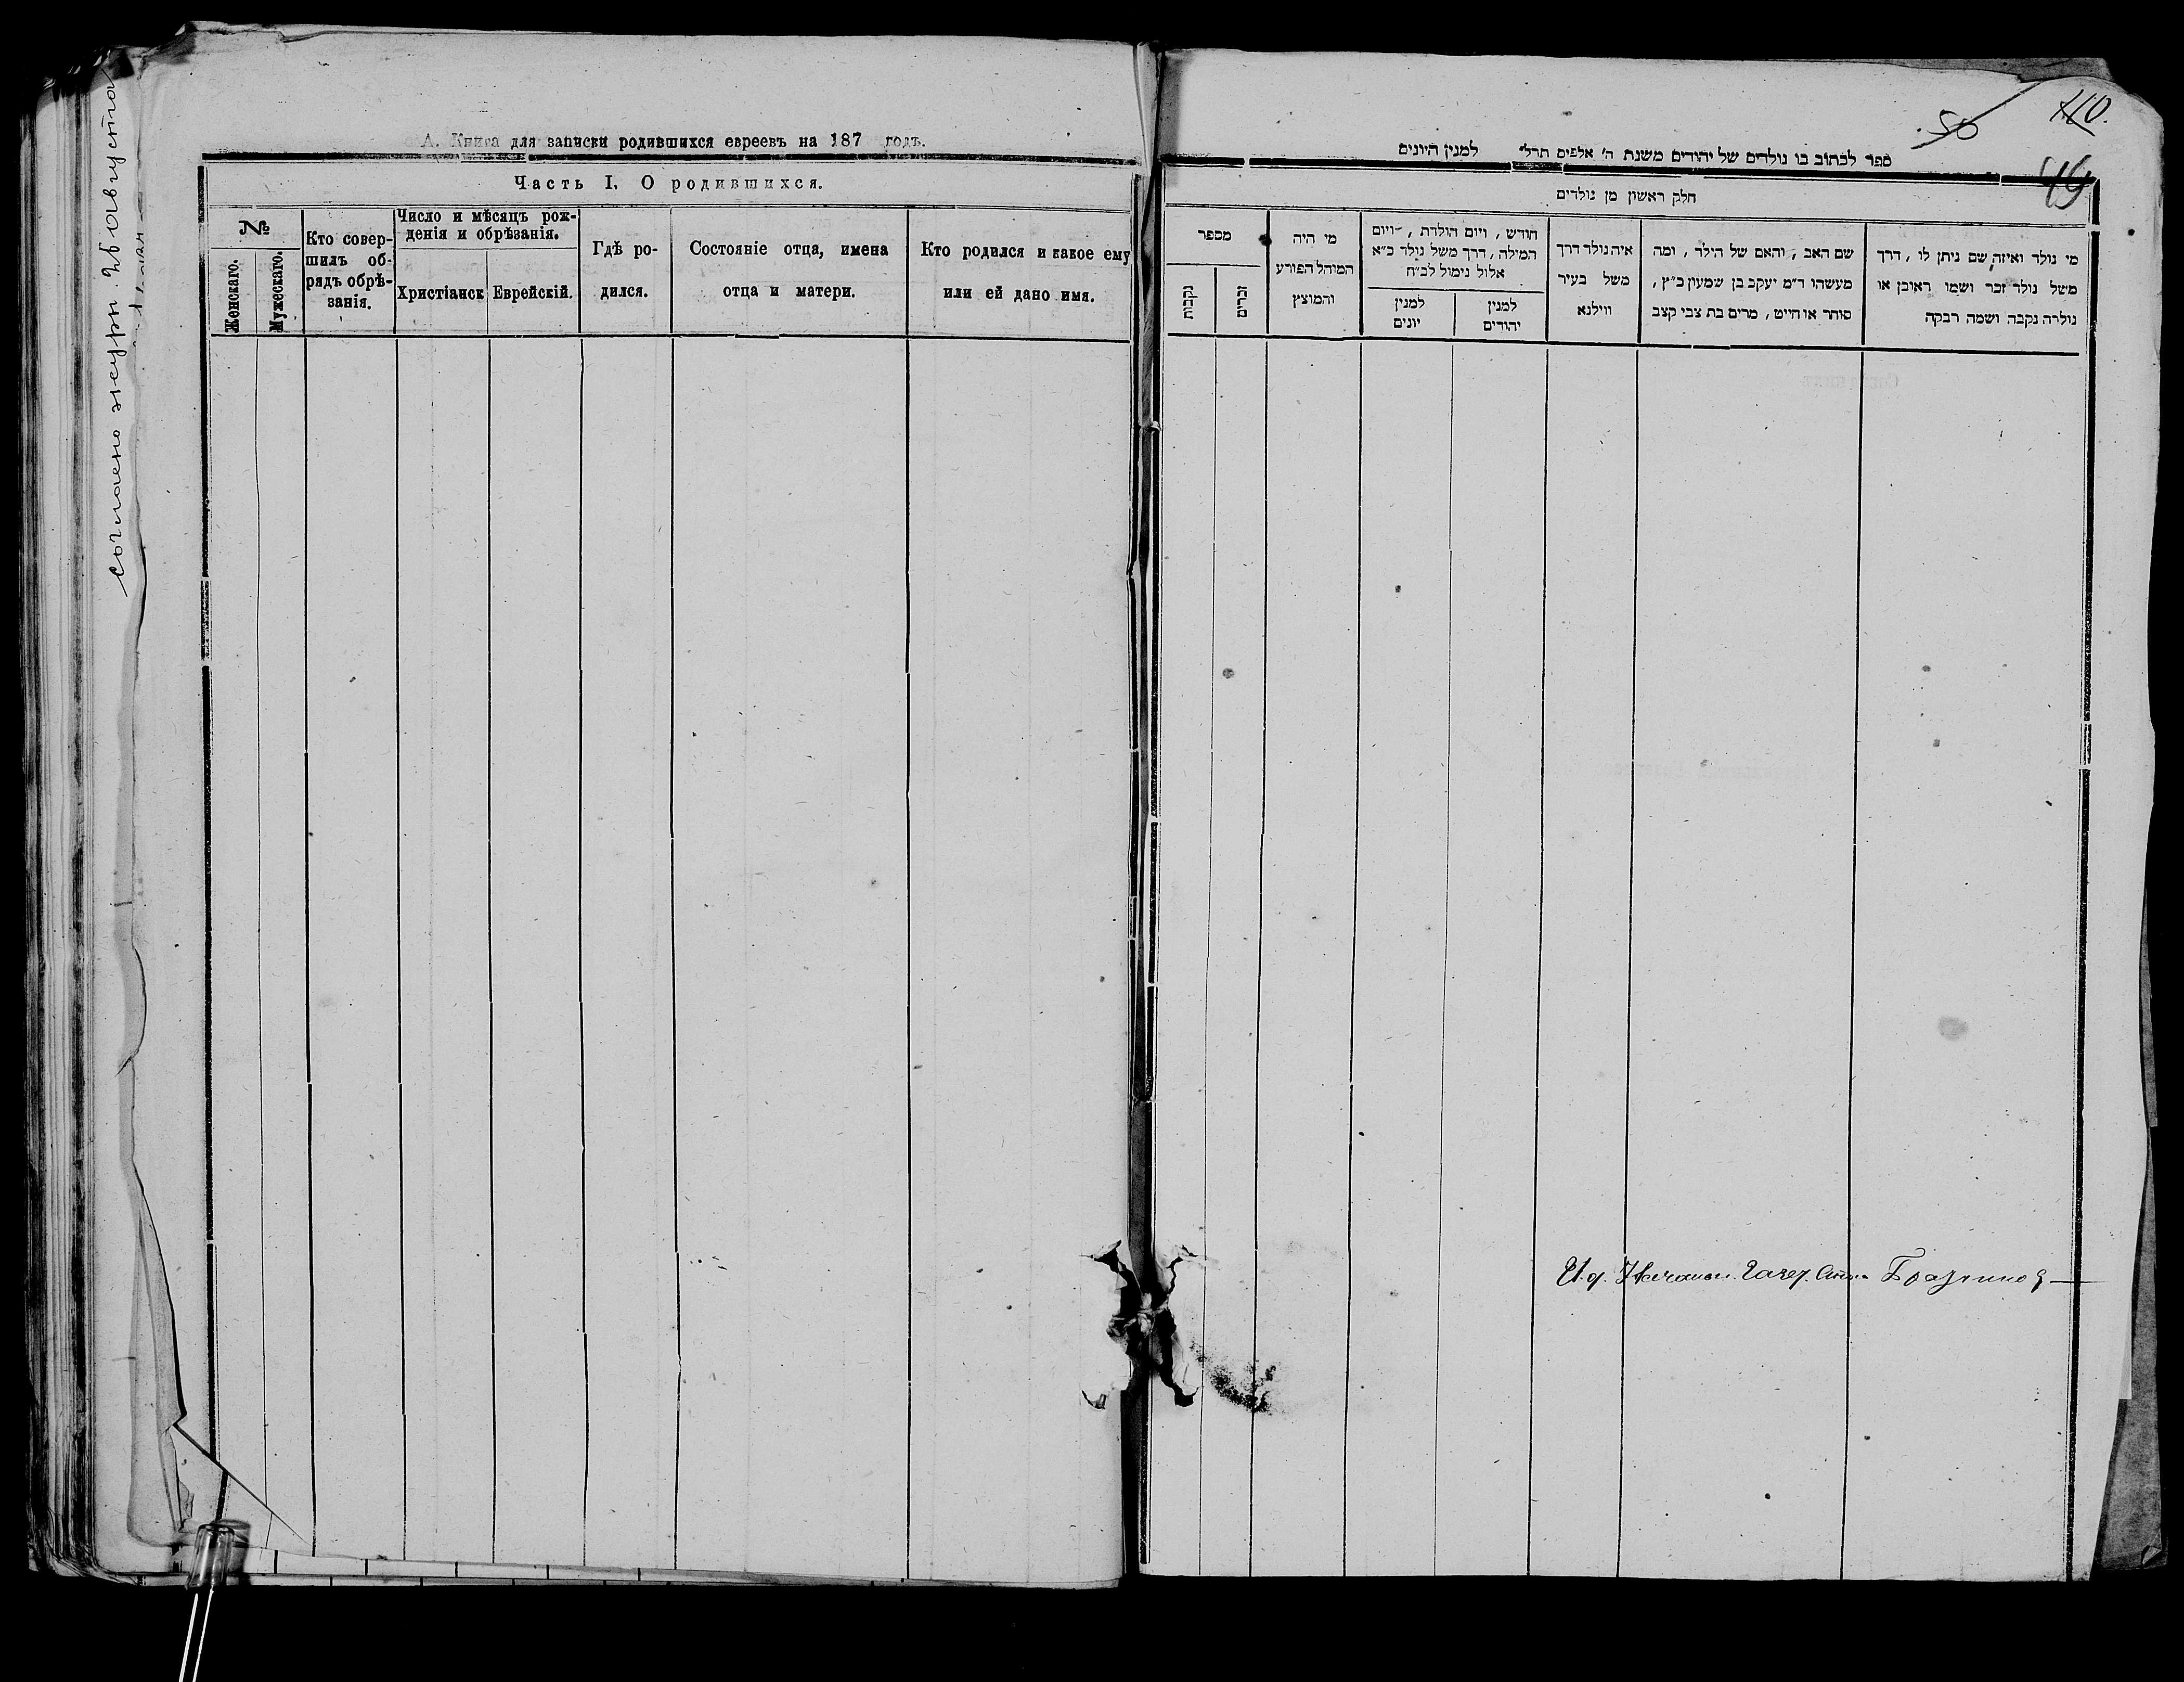 согласно журн. 29 августа
А. Книга для записки родившихся евреевъ на 187 годъ.
Часть I. О родившихся.
№
Женскаго.
Мужескаго.
Кто совер-
шилъ об-
рядъ обрѣ-
занія.
Число и мѣсяцъ рож-
денія и обрѣзанія.
Христіанск
Еврейскій.
Гдѣ ро-
дился.
Состояніе отца, имена
отца и матери.
Кто родился и какое ему
или ей дано имя.
110.
50
49
ספר לכתוב בו נולדים של יהודים משנת ה׳ אלפים תרל״ למנין היונים
חלק ראשון מן נולדים
מי נולד ואיזה שם ניתן לו, דרך
משל נולד זכר ושמו ראובן או
נולדה נקבה ושמה רבקה
שם האב, והאם של הילד, ומה
מעשהו ד״מ יעקב בן שמעון כ״ץ,
סוחר או חייט, מרים בת צבי קצב
איה נולד דרך
משל בעיר
ווילנא
חודש, ויום הולדת, ויום
המילה, דרך משל נולד כ״א
אלול נימול לכ״ח
למנין
יהודים
למנין
יונים
מי היה
המוהל הפורע
והמוצץ
מספר
זכרים
נקבות
И. д.